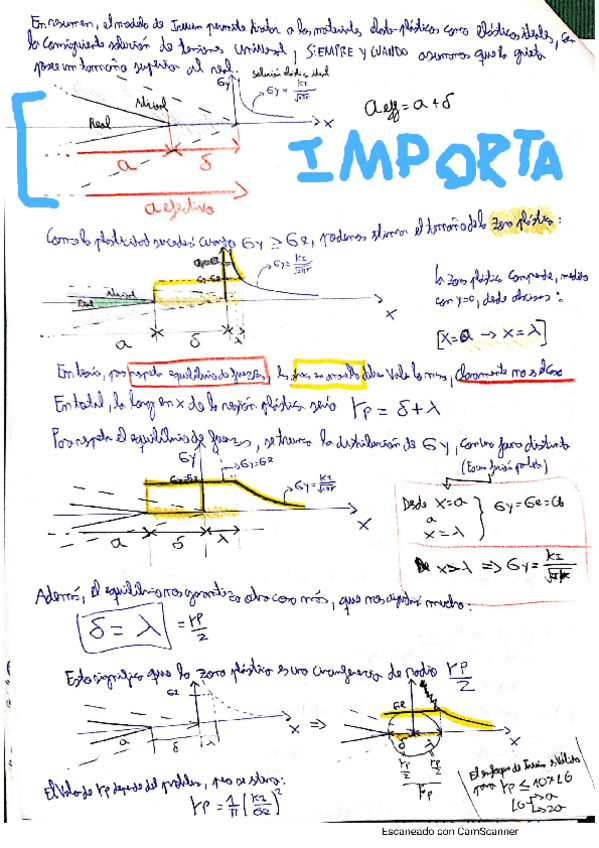 En resumen, el modelo de Irwin permite tratar a los materiales elasto-plásticos como elásticos ideales, con
la consiguiente solución de tensiones universal, SIEMPRE Y CUANDO asumamos que la grieta
posee un tamaño superior al real.
solución elástica ideal
σy
σy = KI/√2πr
Irwin
Real
x
a
δ
a efectivo
a eff = a + δ
IMPORTA
Como la plasticidad sucederá cuando σy ≥ σe, podemos estimar el tamaño de la zona plástica:
σy=σe
σy = KI/√2πr
Real
x
a
δ
λ
la zona plástica comprende, medido
con y=0, desde
[x=a → x=λ]
En teoría, por respeto equilibrio de fuerzas, las áreas en amarillo deben valer lo mismo, claramente no es el caso
En total, la long en x de la región plástica será rp = δ + λ
Para respetar el equilibrio de fuerzas, se trunca la distribución de σy, con una forma distinta
σy
σy=σe
σy=σe
σy = KI/√2πr
x
a
δ
λ
Desde x=a
a
x=λ
σy=σe=cte
De x>λ ⇒ σy = KI/√2πr
Además, el equilibrio nos garantiza otra cosa más, que nos ayudará mucho:
δ = λ = rp/2
Esto significa que la zona plástica es una circunferencia de radio rp/2
σe
x
a
δ
λ
⇒
σe
δ
λ
rp/2
rp/2
rp
x
El valor de rp depende del problema, pero se estima:
rp = 1/π (KI/σe)²
El enfoque de Irwin es válido
para rp ≤ 10% LG
LG → a
→ 2a
Escaneado con CamScanner